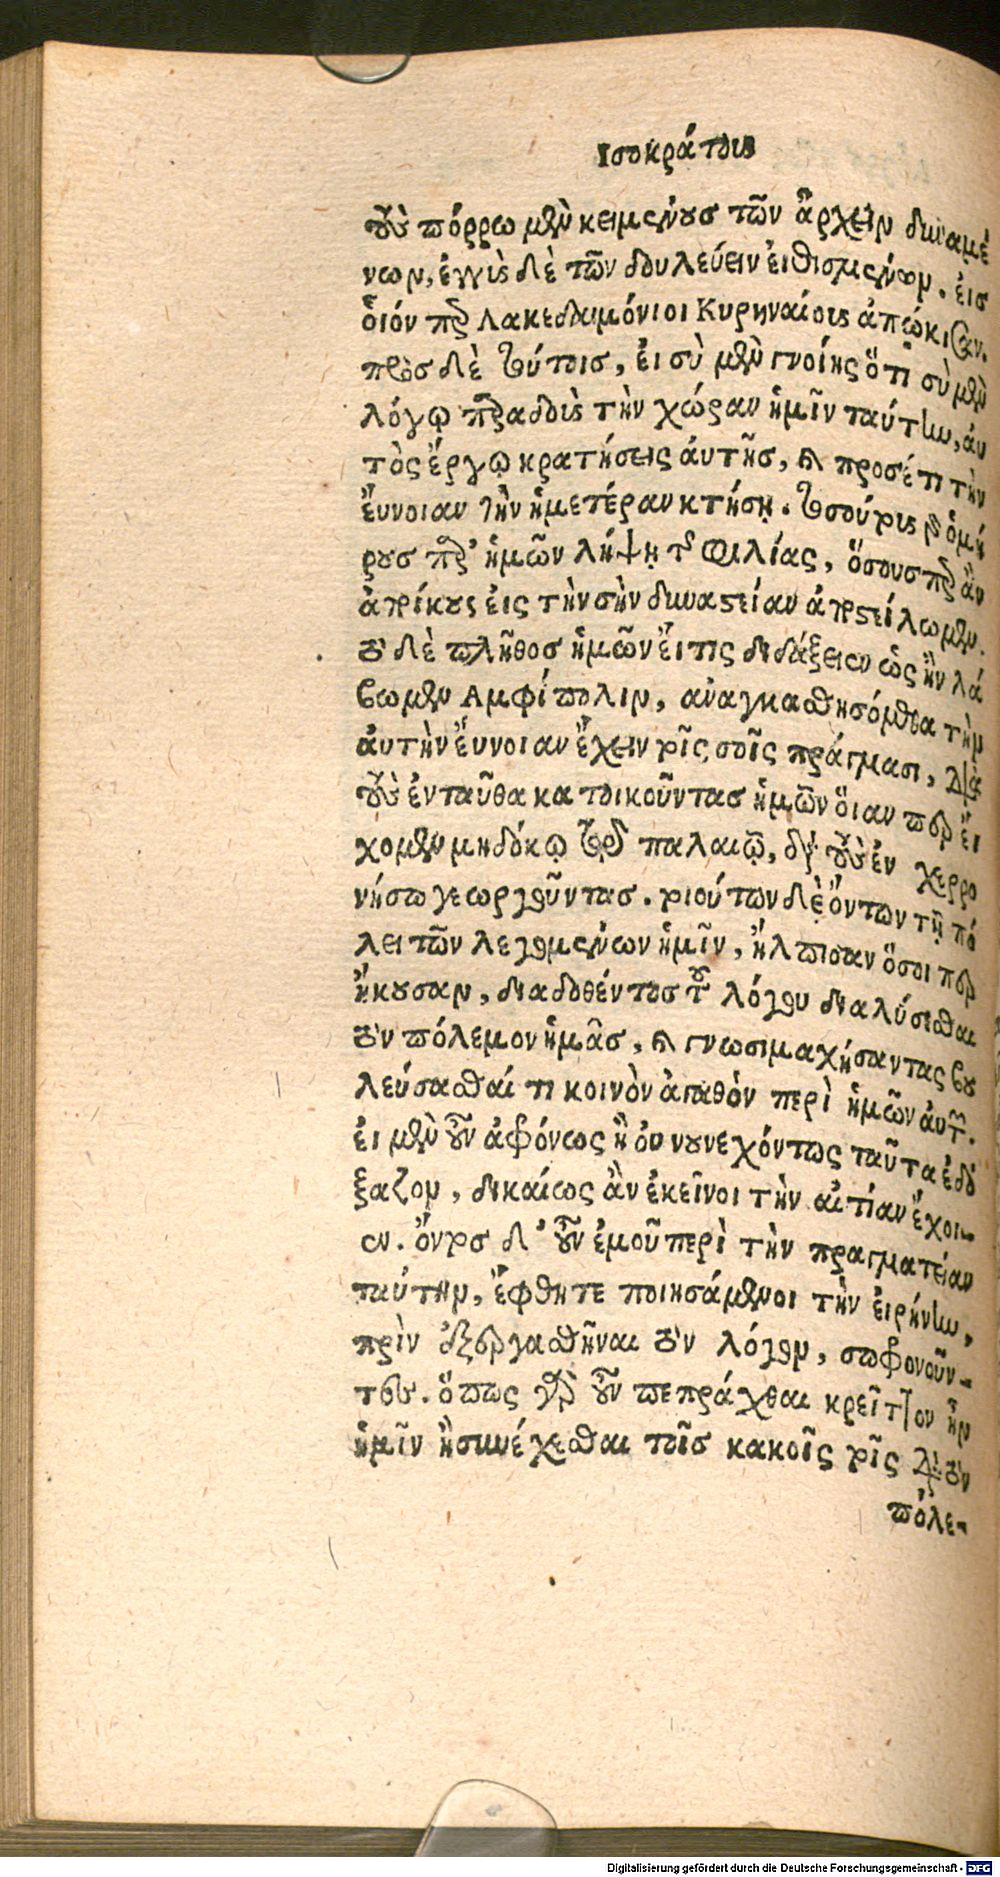 Ισοκράτους
τοὺς πόρρω μὲν κειμένους τῶν ἄρχειν δυναμέ
νων, ἐγγὺς δὲ τῶν δουλεύειν εἰθισμένων. εἰς
οἷόν περ Λακεδαιμόνιοι Κυρηναίους ἀπῴκισαν.
πρὸς δὲ τούτοις, εἰ σὺ μὲν γνοίης ὅτι σὺ μὲν
λόγῳ παραδοὺς τὴν χώραν ἡμῖν ταύτην, αὐ
τὸς ἔργῳ κρατήσεις αὐτῆς, καὶ προσέτι τὴν
εὔνοιαν τὴν ἡμετέραν κτήσῃ. τοσούτους γὰρ ὁμή
ρους παρ' ἡμῶν λήψῃ τῆς φιλίας, ὅσους περ ἂν
ἀποίκους εἰς τὴν σὴν δυναστείαν ἀποστείλωμεν.
τὸ δὲ πλῆθος ἡμῶν εἴ τις διδάξειεν ὡς ἢν λά
βωμεν Αμφίπολιν, ἀναγκασθησόμεθα τὴν
αὐτὴν εὔνοιαν ἔχειν τοῖς σοῖς πράγμασι, διὰ
τοὺς ἐνταῦθα κατοικοῦντας ἡμῶν οἵαν περ εἴ
χομεν μηδόκῳ τῷ παλαιῷ, διὰ τοὺς ἐν χερρο
νήσῳ γεωργοῦντας. τοιούτων δὲ ὄντων τῇ πό
λει τῶν λεγομένων ἡμῖν, ἤλπισαν ὅσοι περ
ἤκουσαν, διαδοθέντος τοῦ λόγου διαλύσεσθαι
τὸν πόλεμον ἡμᾶς, καὶ γνωσιμαχήσαντας βου
λεύσασθαί τι κοινὸν ἀγαθὸν περὶ ἡμῶν αὐτῶν.
εἰ μὲν οὖν ἀφρόνως ἢ οὐ νουνεχόντως ταῦτα ἐδό
ξαζον, δικαίως ἂν ἐκεῖνοι τὴν αἰτίαν ἔχοι-
εν. ὄντος δ' οὖν ἐμοῦ περὶ τὴν πραγματείαν
ταύτην, ἔφθητε ποιησάμενοι τὴν εἰρήνην,
πρὶν ἐξεργασθῆναι τὸν λόγον, σωφρονοῦν-
τες. ὅπως γὰρ οὖν πεπράχθαι κρεῖττον ἦν
ἡμῖν ἢ συνέχεσθαι τοῖς κακοῖς τοῖς διὰ τὸν
πόλε-
Digitalisierung gefördert durch die Deutsche Forschungsgemeinschaft - DFG